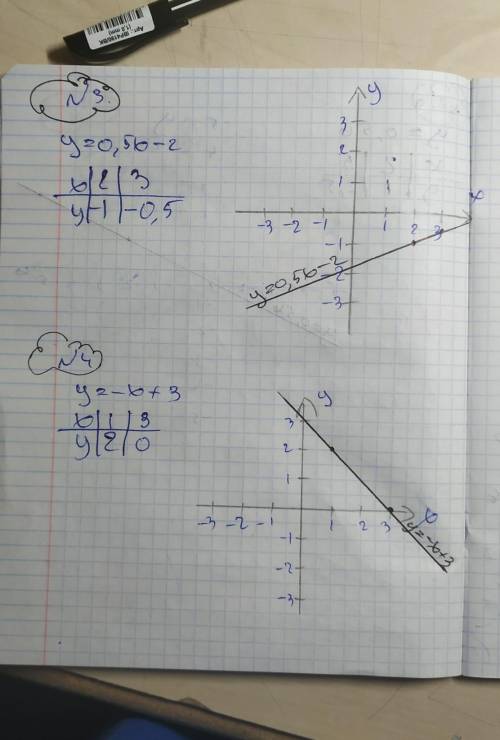 Арт.: BP4186/BK
(1,0 mm)
N3.
y=0,5x-2
x 2 3
y -1 -0,5
y
3
2
1
-3 -2 -1 1 2 3 x
-1
-2
-3
y=0,5x-2
N4
y=-x+3
x 1 3
y 2 0
y
3
2
1
-3 -2 -1 1 2 3 x
-1
-2
-3
y=-x+3